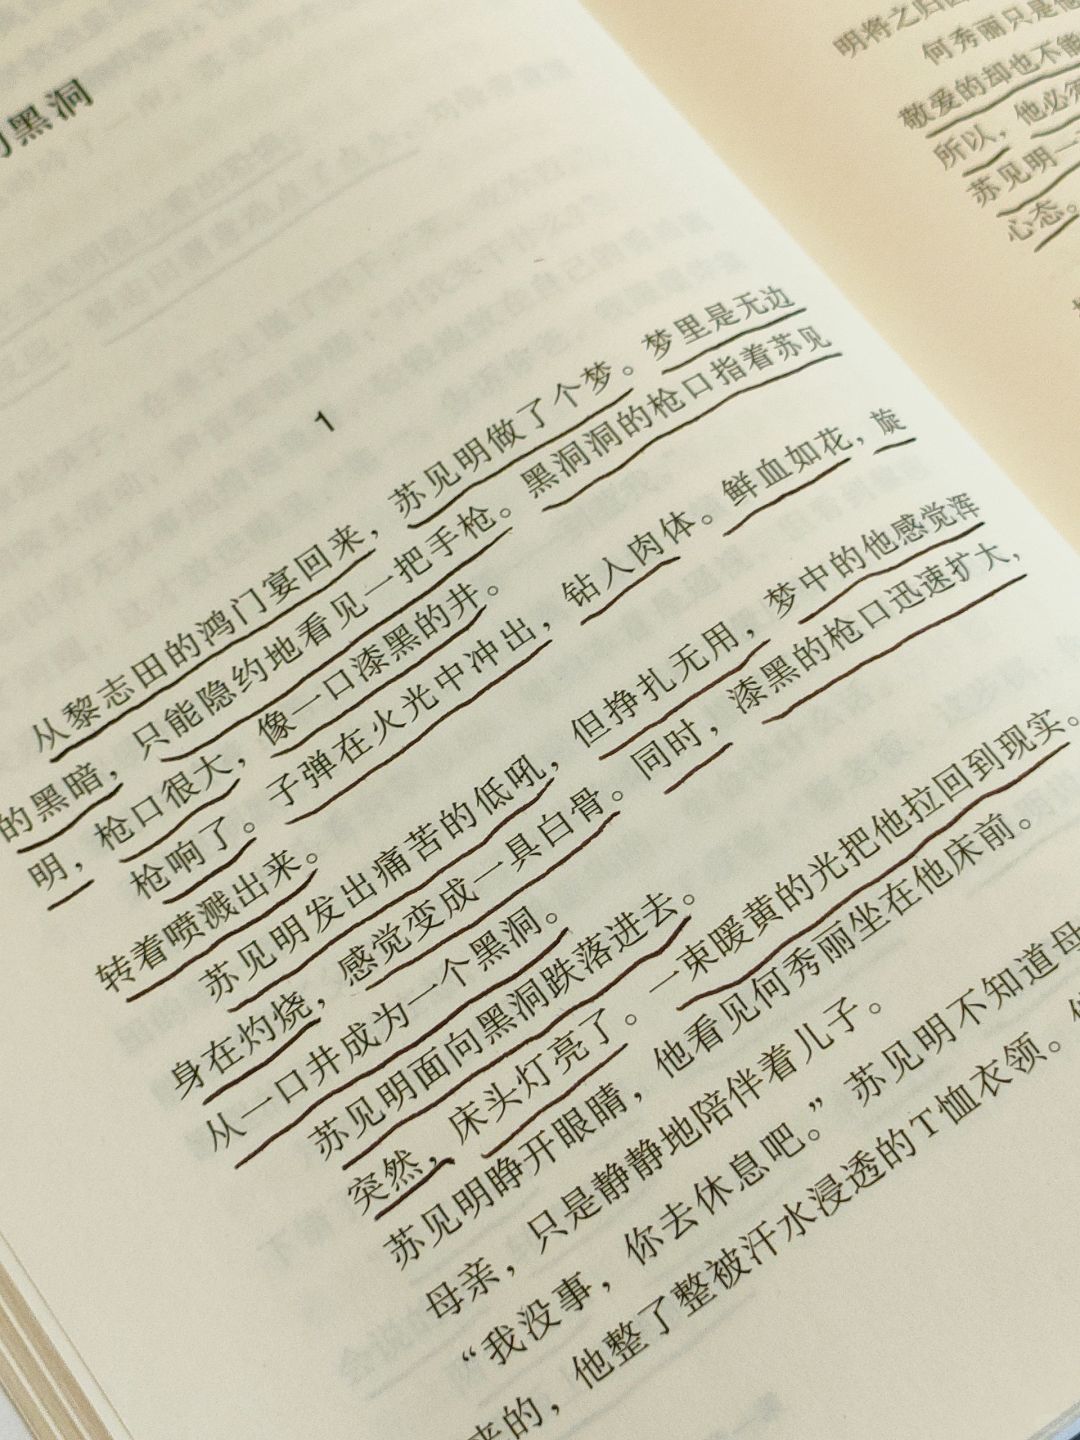 黑洞
1
从黎志田的鸿门宴回来，苏见明做了个梦。梦里是无边
的黑暗，只能隐约地看见一把手枪。黑洞洞的枪口指着苏见
明，枪口很大，像一口漆黑的井。
枪响了。子弹在火光中冲出，钻入肉体。鲜血如花，旋
转着喷溅出来。
苏见明发出痛苦的低吼，但挣扎无用，梦中的他感觉浑
身在灼烧，感觉变成一具白骨。同时，漆黑的枪口迅速扩大，
从一口井成为一个黑洞。
苏见明面向黑洞跌落进去。
突然，床头灯亮了。一束暖黄的光把他拉回到现实。
苏见明睁开眼睛，他看见何秀丽坐在他床前。
母亲，只是静静地陪伴着儿子。
“我没事，你去休息吧。”苏见明不知道母
来的，他整了整被汗水浸透的T恤衣领。
明将之归因
何秀丽只是他
敬爱的却也不能
所以，他必须
苏见明一
心态。